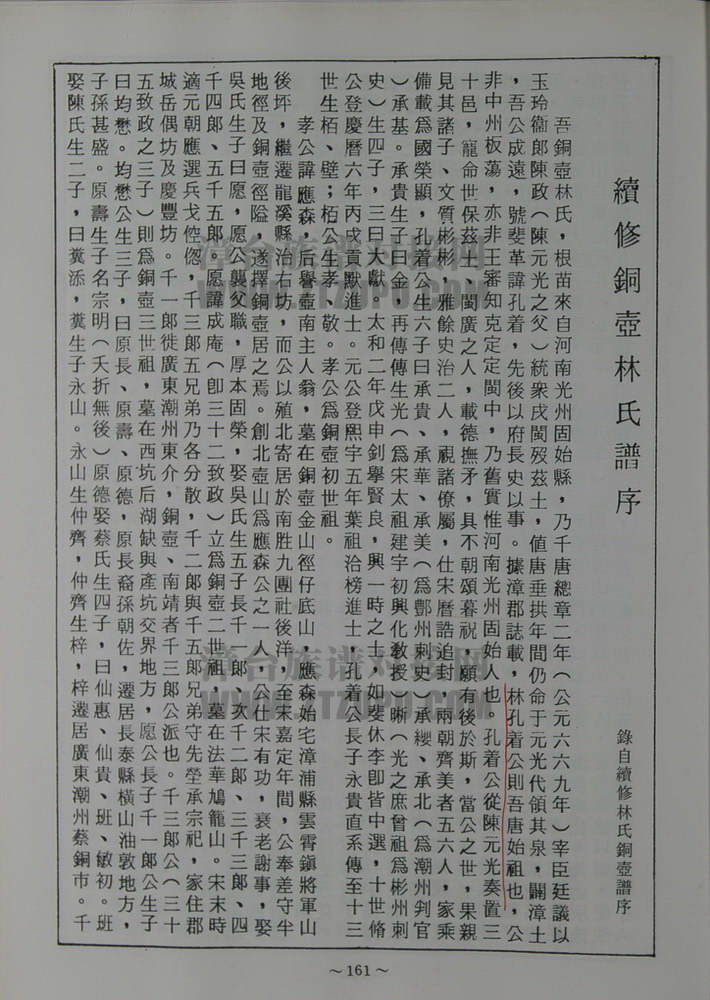 續修銅壺林氏譜序
錄自續修林氏銅壺譜序
吾銅壺林氏，根苗來自河南光州固始縣，乃千唐總章二年（公元六六九年）宰臣廷議以
玉玲衞郎陳政（陳元光之父）統衆戍閩歿茲土，値唐垂拱年間仍命于元光代領其泉，闢漳土
，吾公成遠，號斐革諱孔着，先後以府長史以事。據漳郡誌載，林孔着公則吾唐始祖也，公
非中州板蕩，亦非王審知克定定閩中，乃舊實惟河南光州固始人也。孔着公從陳元光奏置三
十邑，寵命世保茲土、閩廣之人，載德撫矛，具不朝頌暮祝，願有後於斯，當公之世，果親
見其諸子、文質彬彬，雅餘史治二人，視諸僚屬，仕宋曆誥追封，兩朝齊美者五六人，家乘
備載爲國榮顯，孔着公生六子曰承貴、承華、承美（爲酆州刺史）承纓、承北（爲潮州判官
）承基。承貴生子曰金，再傳傳生光（爲宋太祖建宇初興化教授）晰（光之庶曾祖爲彬州刺
史）生四子，三曰大獻，太和二年戊申釗擧賢良，興一時之士，如斐休李卽皆中選，十世脩
公登慶曆六年丙戌貢默進士。元公登熙宇五年葉祖洽榜進士，孔着公長子永貴直系傳至十三
世生栢、壁；栢公生孝、敬。孝公爲銅壺初世祖。
孝公諱應森，后譽壺南主人翁，墓在銅壺金山徑仔底山，應森始宅漳浦縣雲霄鎭將軍山
後坪，繼遷龍溪縣治右坊，而公以殖北寄居於南胜九團社後洋，至宋嘉定年間，公奉差守半
地徑及銅壺徑隘，遂擇銅壺居之焉。創北壺山爲應森公之一人，公仕宋有功，衰老謝事，娶
吳氏生子曰愿，愿公襲父職，厚本固榮，娶吳氏生五子長千一郎、次千二郎、三千三郎、四
千四郎、五千五郎。愿諱成庵（卽三十二致政）立爲銅壺二世祖，墓在法華鳩籠山。宋末時
適元朝應選兵戈倥傯，千三郎五兄弟乃各分散，千二郎與千五郎兄弟守先塋承宗祀，家住郡
城岳偶坊及慶豐坊。千一郎徙廣東潮州東介，銅壺、南靖者千三郎公派也。千三郎公（三十
五致政之三子）則爲銅壺三世祖，墓在西坑后湖缺與產坑交界地方，愿公長子千一郎公生子
曰均懋。均懋公生三子，曰原長、原壽、原德，原長裔孫朝佐，遷居長泰縣橫山油敦地方，
子孫甚盛。原壽生子名宗明（夭折無後）原德娶蔡氏生四子，曰仙惠、仙貴、班、敏初。班
娶陳氏生二子，曰糞添，糞生子永山。永山生仲齊，仲齊生梓，梓遷居廣東潮州蔡銅市。千
～161～
漳台族谱对接网
WWW.TZUPU.COM
漳台族谱对接网
WWW.TZUPU.COM